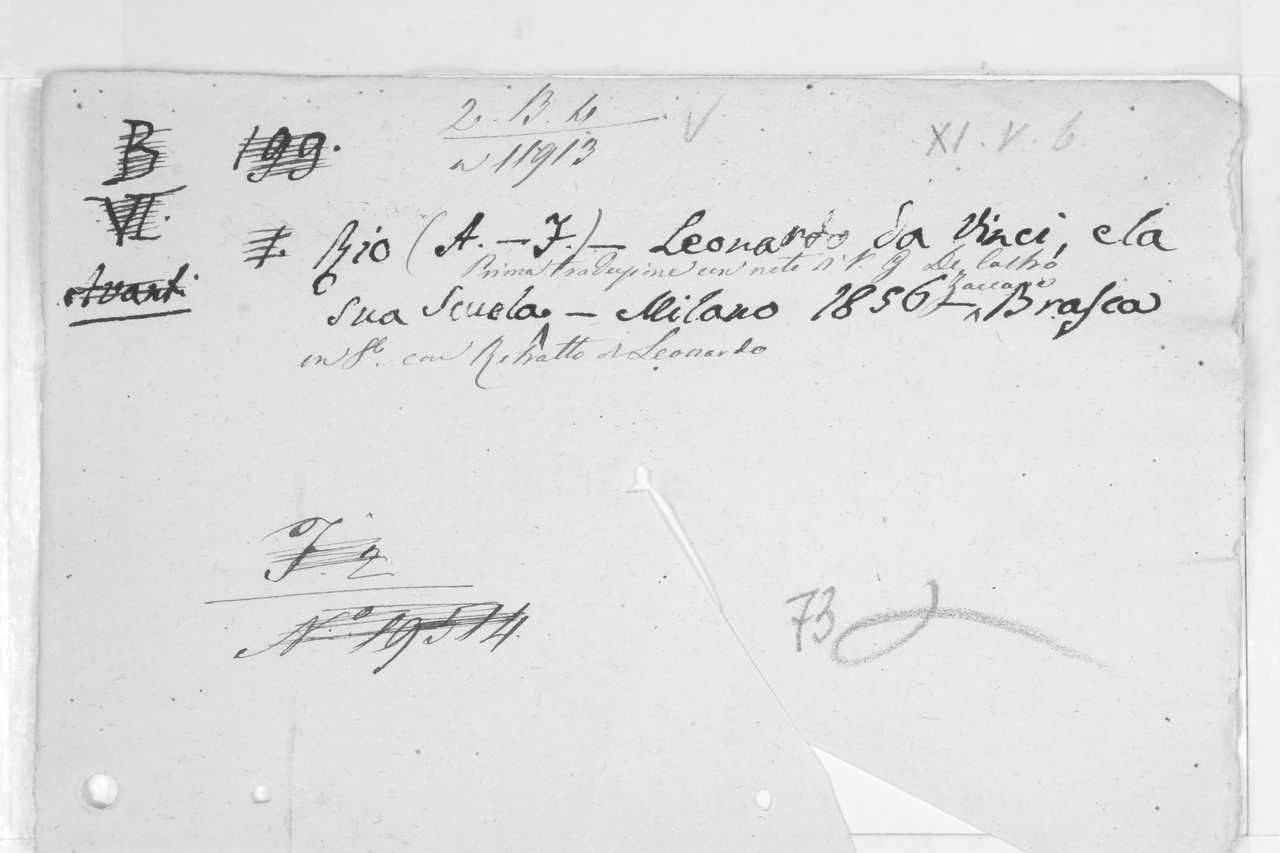 2. B. 4
n 11913
V
XI. V. 6
B
VI.
199.
Avanti
Rio (A. – F.) – Leonardo da Vinci, e la
Prima traduzione con note di V. G. De Castro
Zaccaria
sua Scuola – Milano 1856 – Brasca
in 8º. con Ritratto di Leonardo
F. 2
N.º 19514
73